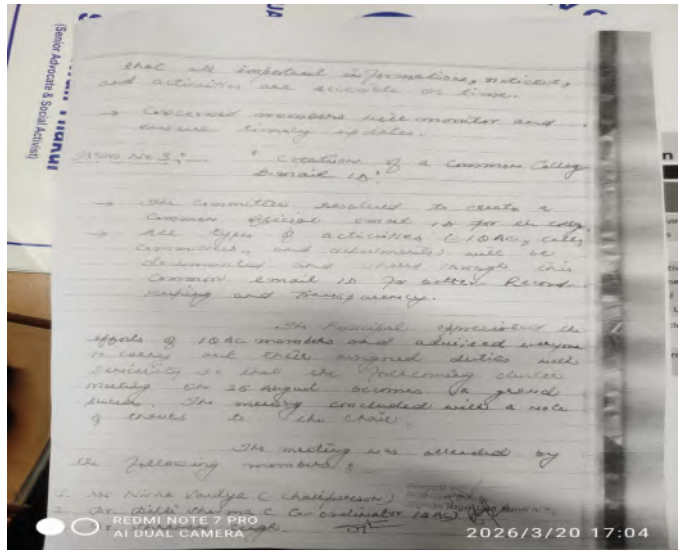 (Senior Advocate & Social Activist)
that all important informations, notices,
and activities are accessible on time.
→ Concerned members will monitor and
ensure timely updates.
Item No 3:- "Creation of a Common College
E-mail ID"
→ The Committee resolved to create a
common official email ID for the college.
→ All types of activities (IQAC, college
committees, and departments) will be
documented and shared through this
common email ID for better Record-
keeping and transparency.
The Principal appreciated the
efforts of IQAC members and advised everyone
to carry out their assigned duties with
sincerity so that the forthcoming cluster
meeting on 25 August becomes a grand
success. The meeting concluded with a note
of thanks to the chair.
The meeting was attended by
the following members:
1. Ms Vaidya (Chairperson)
2. Dr. Sharma (Co-ordinator IQAC)
REDMI NOTE 7 PRO
AI DUAL CAMERA
2026/3/20 17:04